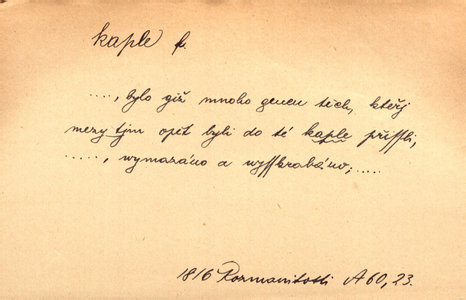 kaple f.
...., bylo giž mnoho gmen těch, kteřj
mezy tjm opět byli do té kaple přissli,
....., wymazáno a wysskrabáno; ....
1816 Rozmanitosti A 60, 23.